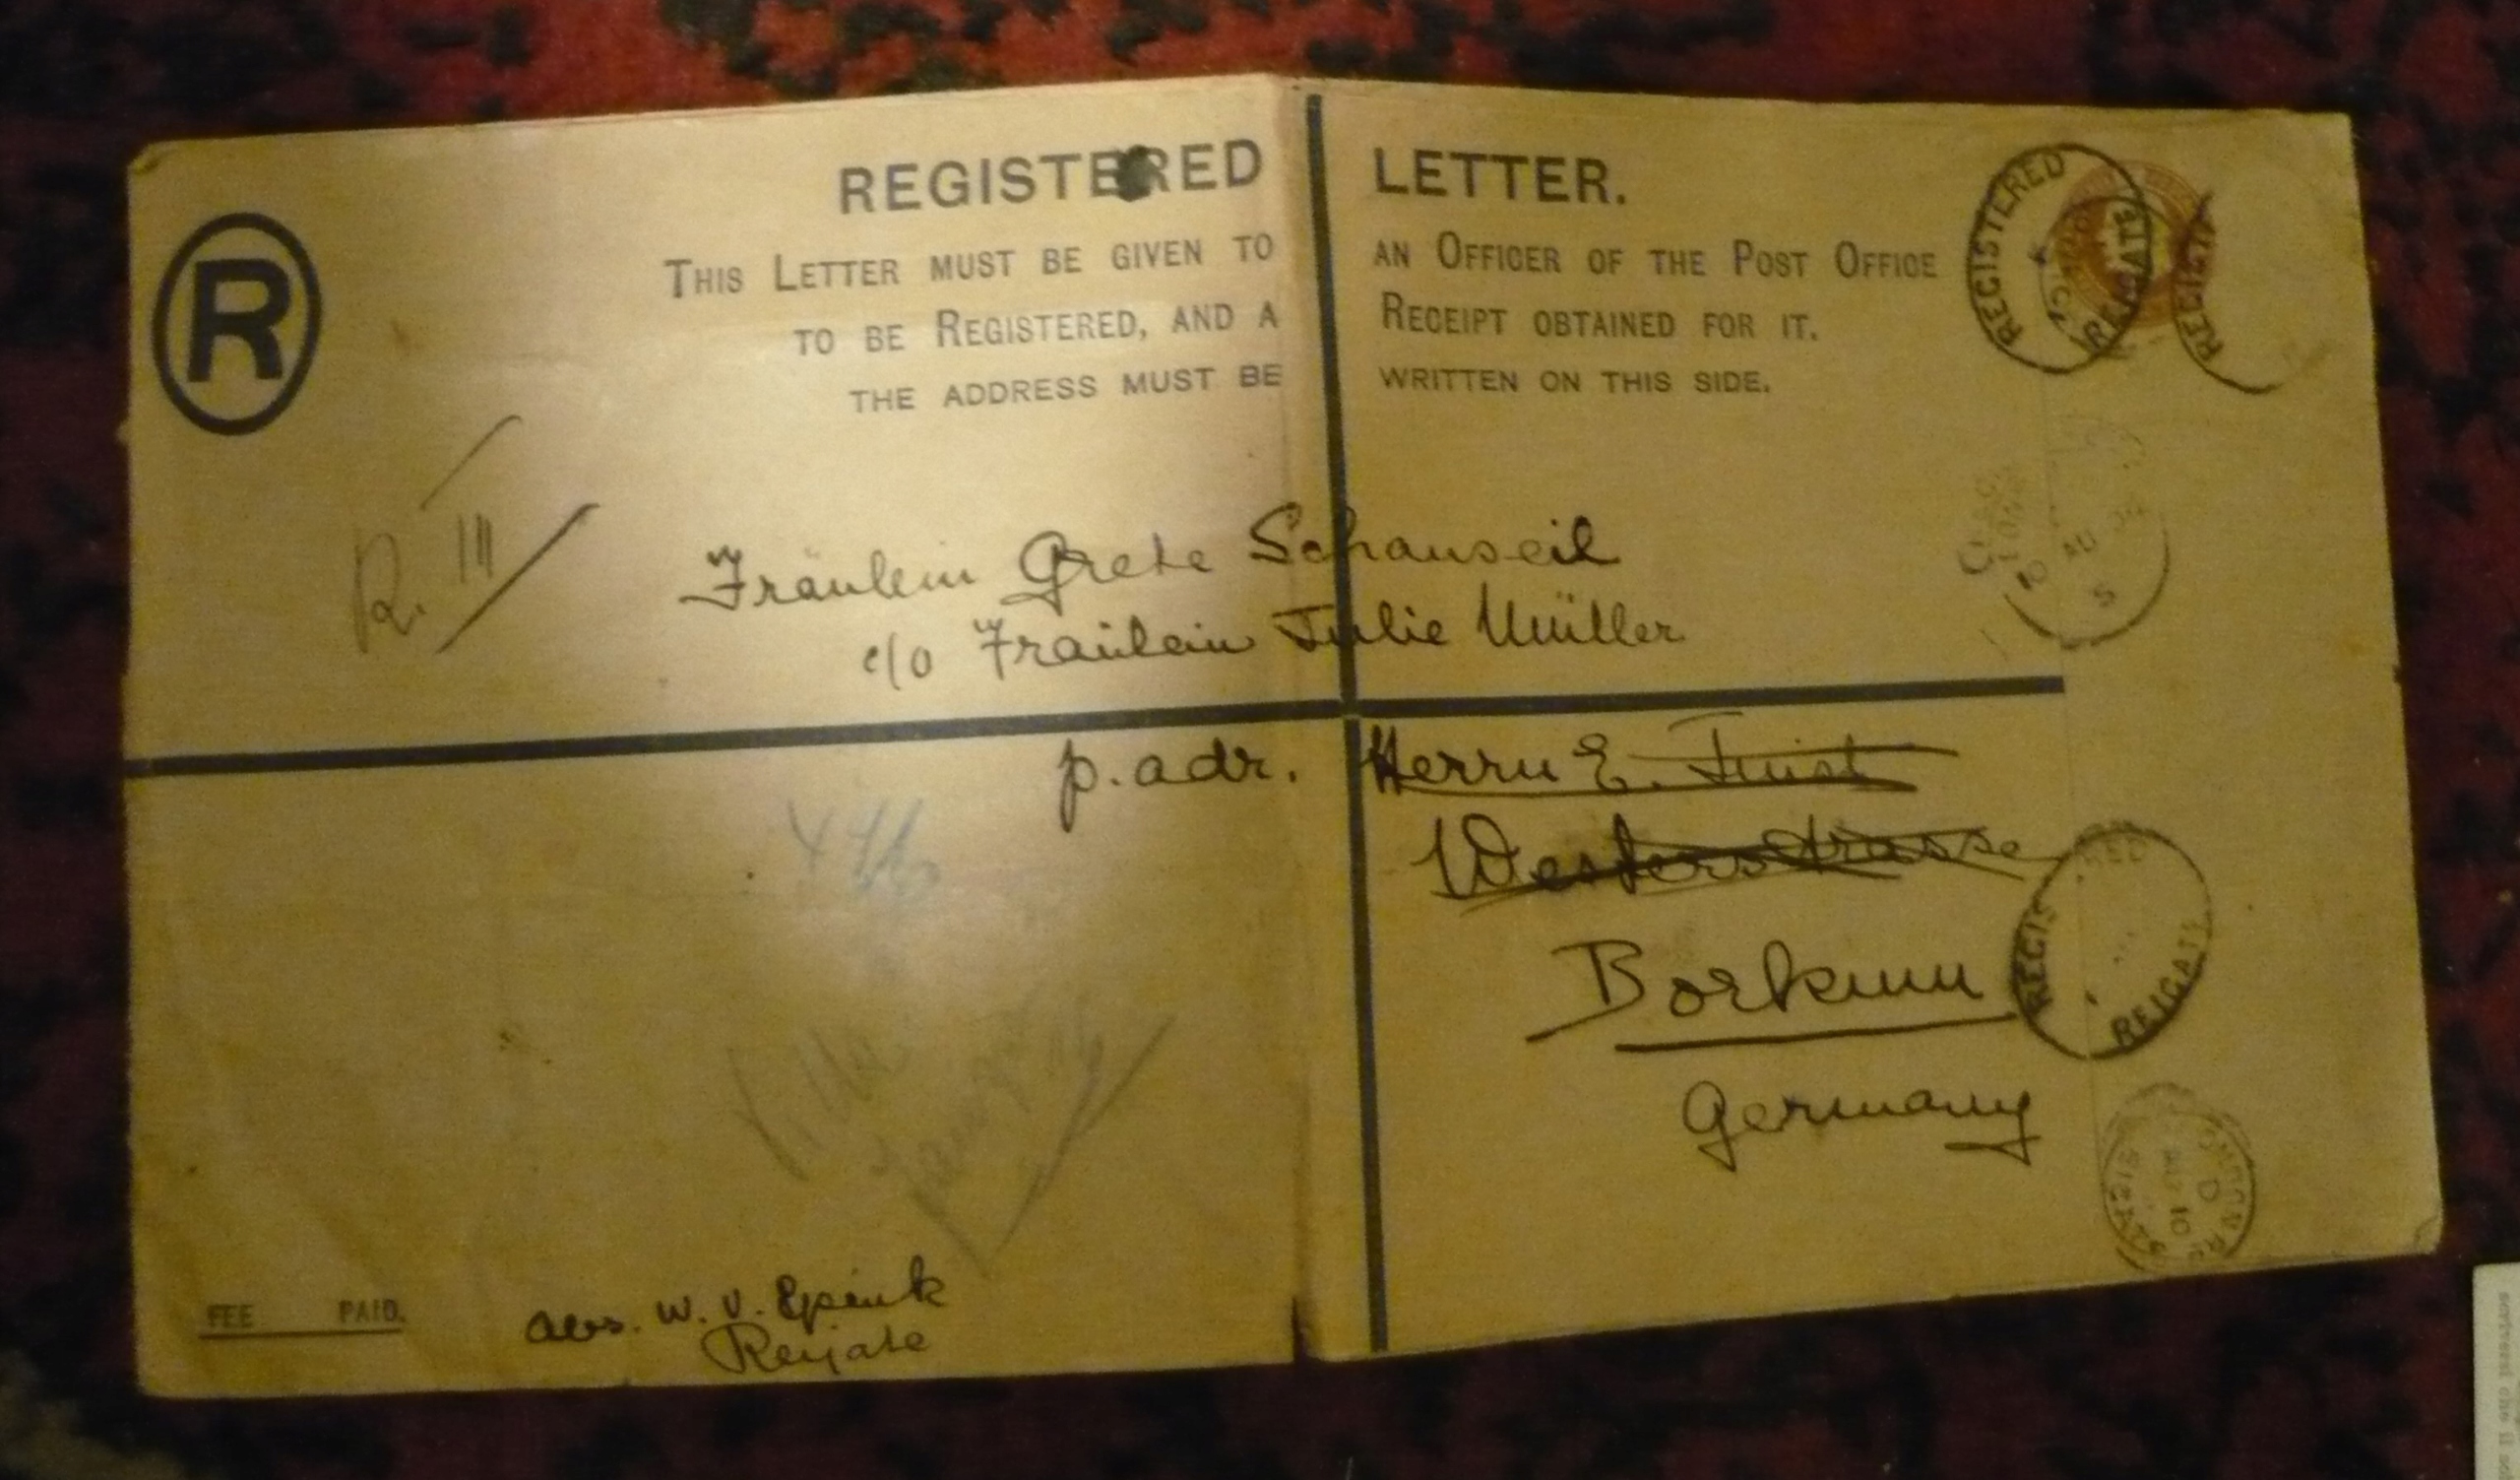 REGISTERED LETTER.
THIS LETTER MUST BE GIVEN TO AN OFFICER OF THE POST OFFICE
TO BE REGISTERED, AND A RECEIPT OBTAINED FOR IT.
THE ADDRESS MUST BE WRITTEN ON THIS SIDE.
R
REGISTERED
REIGATE
REGISTE
R. III
10 AU
S
Fräulein Grete Schauseil
c/o Fräulein Julie Müller
p. adr. Herrn E.
Westerstrasse
Borkum
Germany
REGIS RED
REIGATE
D
10
FEE PAID.
abs. W. V.
Reigate